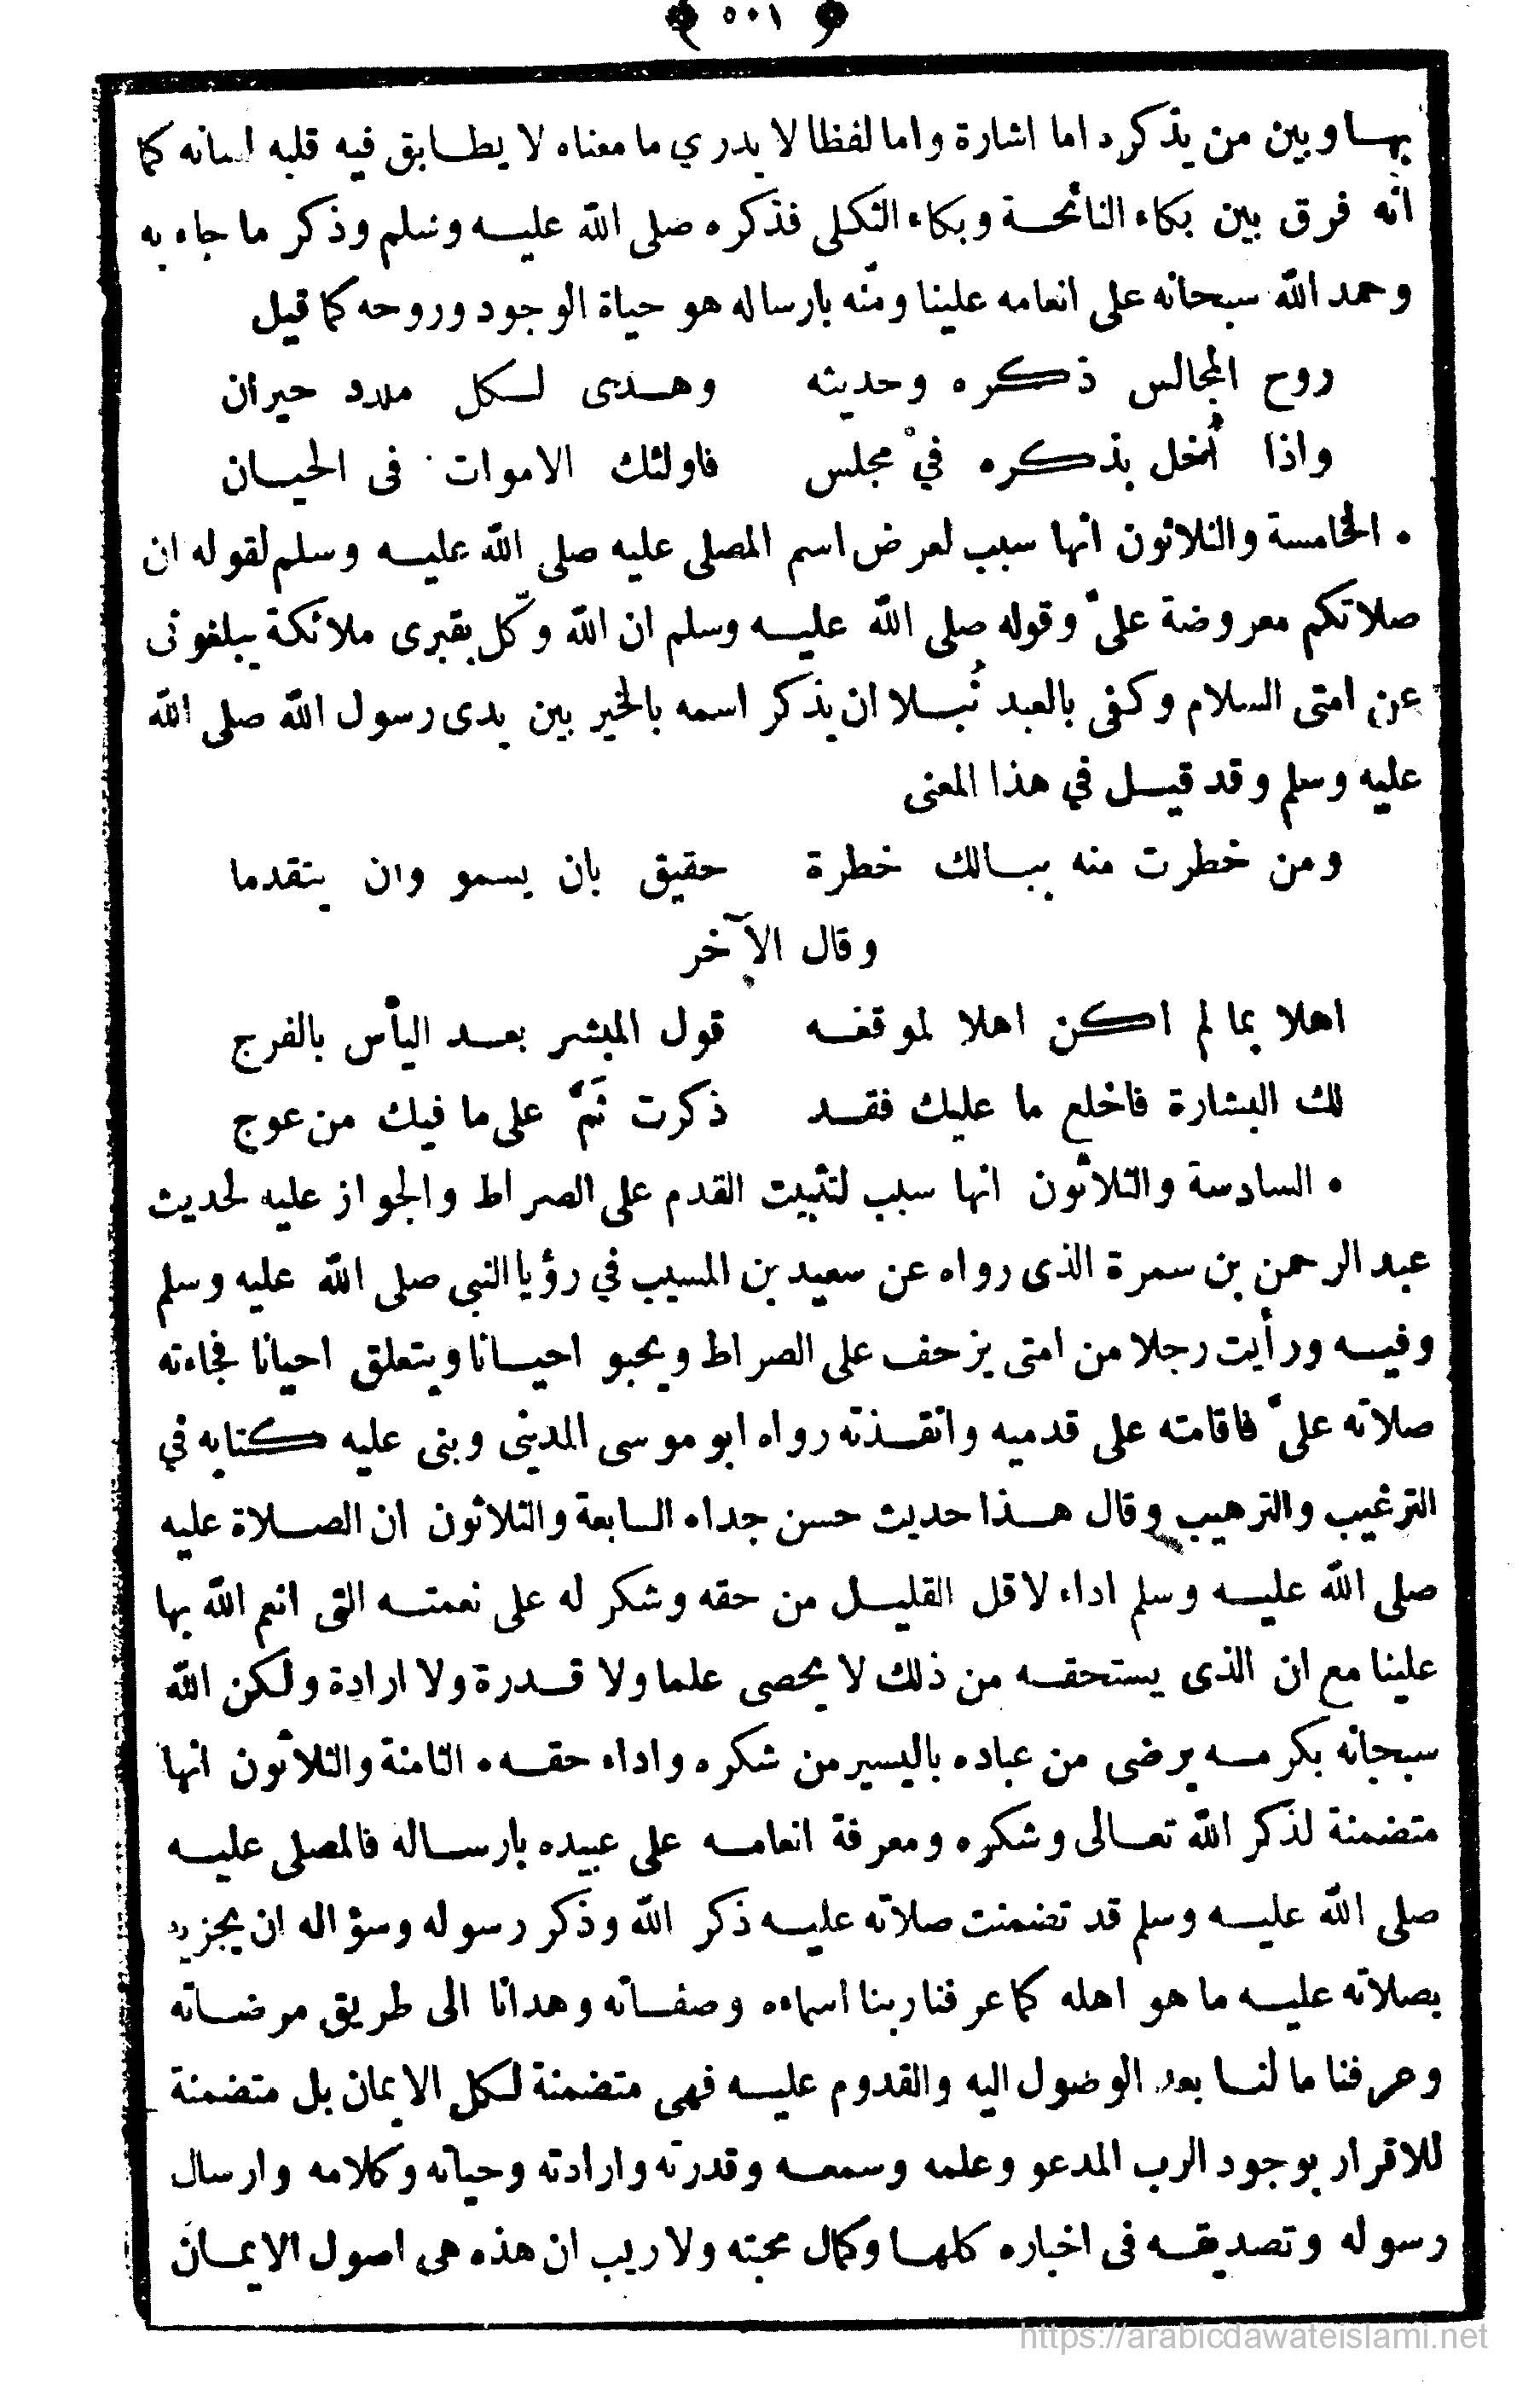 ﴿ ٥٠١ ﴾
بهـا وبين من يذكره اما اشارة واما لفظا لا يدري ما معناه لا يطـابق فيه قلبه لسانه كما
انه فرق بين بكاء النائحـة وبكاء الثكلى فذكره صلى الله عليـه وسلم وذكر ما جاء به
وحمد الله سبحانه على انعامه علينا ومنّه بارساله هو حياة الوجود وروحه كما قيل
روح المجالس ذكره وحديثه وهـدى لـكل ملدد حيران
واذا أُخل بذكره في مجلس فاولئك الاموات فى الحيـان
• الخامسة والثلاثون انها سبب لعرض اسم المصلى عليه صلى الله عليـه وسلم لقوله ان
صلاتكم معروضة علىّ وقوله صلى الله عليـه وسلم ان الله وكّل بقبرى ملائكة يبلغونى
عن امتى السلام وكفى بالعبد نُبـلا ان يذكر اسمه بالخير بين يدى رسول الله صلى الله
عليه وسلم وقد قيـل في هذا المعنى
ومن خطرت منه ببـالك خطرة حقيق بان يسمو وان يتقدما
وقال الآخر
اهلا بما لم اكن اهلا لموقفـه قول المبشر بعـد اليأس بالفرج
لك البشارة فاخلع ما عليك فقـد ذكرت ثَمّ على ما فيك من عوج
• السادسة والثلاثون انها سبب لتثبيت القدم على الصراط والجواز عليه لحديث
عبد الرحمن بن سمرة الذى رواه عن سعيد بن المسيب في رؤيا النبى صلى الله عليه وسلم
وفيـه ورأيت رجلا من امتى يزحف على الصراط ويحبو احيـانا ويتعلق احيانا فجاءته
صلاته علىّ فاقامته على قدميه وانقـذته رواه ابو موسى المدينى وبنى عليه كتابه في
الترغيب والترهيب وقال هـذا حديث حسن جدا• السابعة والثلاثون ان الصـلاة عليه
صلى الله عليـه وسلم اداء لاقل القليـل من حقه وشكر له على نعمتـه التى انعم الله بها
علينا مع ان الذى يستحقـه من ذلك لا يحصى علما ولا قـدرة ولا ارادة ولكن الله
سبحانه بكرمـه يرضى من عباده باليسير من شكره واداء حقـه• الثامنة والثلاثون انها
متضمنة لذكر الله تعـالى وشكره ومعرفة انعامـه على عبيده بارسـاله فالمصلى عليـه
صلى الله عليـه وسلم قد تضمنت صلاته عليـه ذكر الله وذكر رسوله وسؤاله ان يجزيه
بصلاته عليـه ما هو اهله كما عرفنا ربنا اسماءه وصفـاته وهدانا الى طريق مرضـاته
وعرفنا ما لنـا بعد الوصول اليه والقدوم عليـه فهى متضمنة لـكل الايمان بل متضمنة
للاقرار بوجود الرب المدعو وعلمه وسمعـه وقدرته وارادته وحياته وكلامه وارسال
رسوله وتصديقـه فى اخباره كلهـا وكمال محبته ولا ريب ان هذه هى اصول الايمـان
https://arabicdawateislami.net